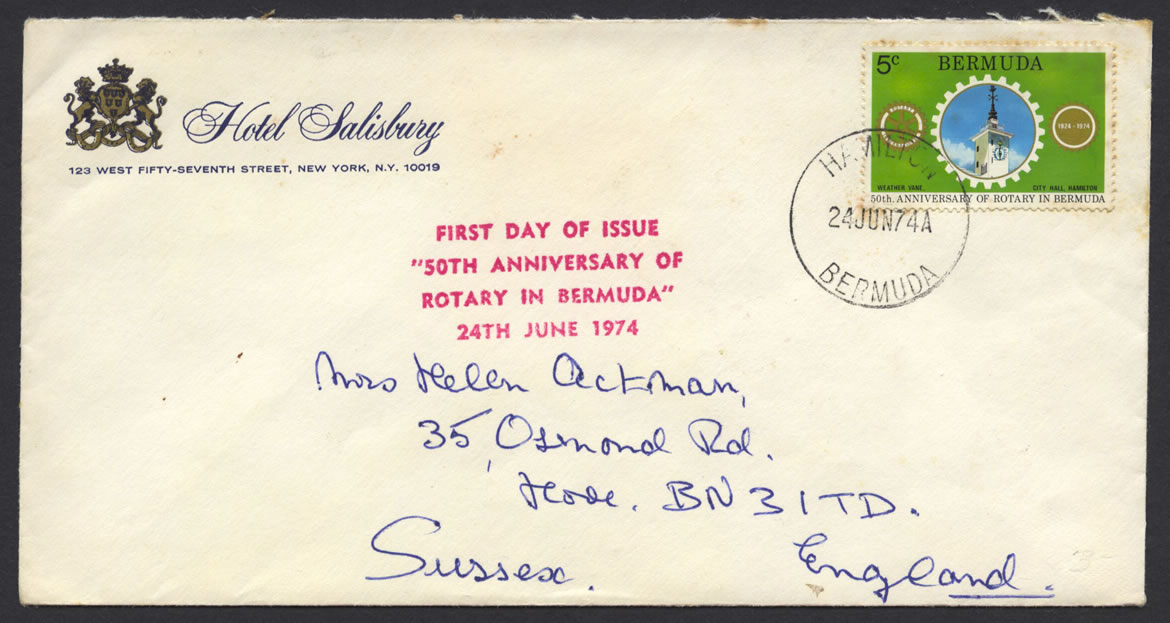 Hotel Salisbury
123 WEST FIFTY-SEVENTH STREET, NEW YORK, N.Y. 10019
5c
BERMUDA
1924 - 1974
WEATHER VANE.
CITY HALL, HAMILTON
50th. ANNIVERSARY OF ROTARY IN BERMUDA
HAMILTON
24JUN74A
BERMUDA
FIRST DAY OF ISSUE
"50TH ANNIVERSARY OF
ROTARY IN BERMUDA"
24TH JUNE 1974
Mrs Helen Ackman,
35, Osmond Rd.
Hove. BN3 1TD.
Sussex.
England.